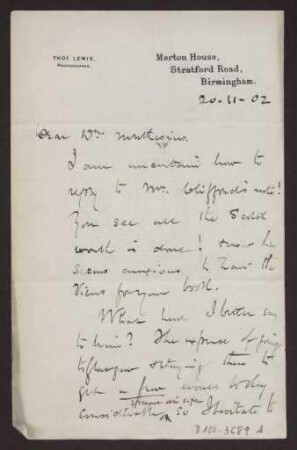 THOS LEWIS,
PHOTOGRAPHER.
Merton House,
Stratford Road,
Birmingham.
20-11-02
Dear Dr. Muthesius,
I am uncertain how to
reply to Mr. Clifford's note!
You see all the
work is done! and he
seems anxious to have the
views for your book.
What had I better say
to him? The expense of going
to Glasgow & staying there to
get a few would be very
considerable, so I hesitate to
D 102-3689 A